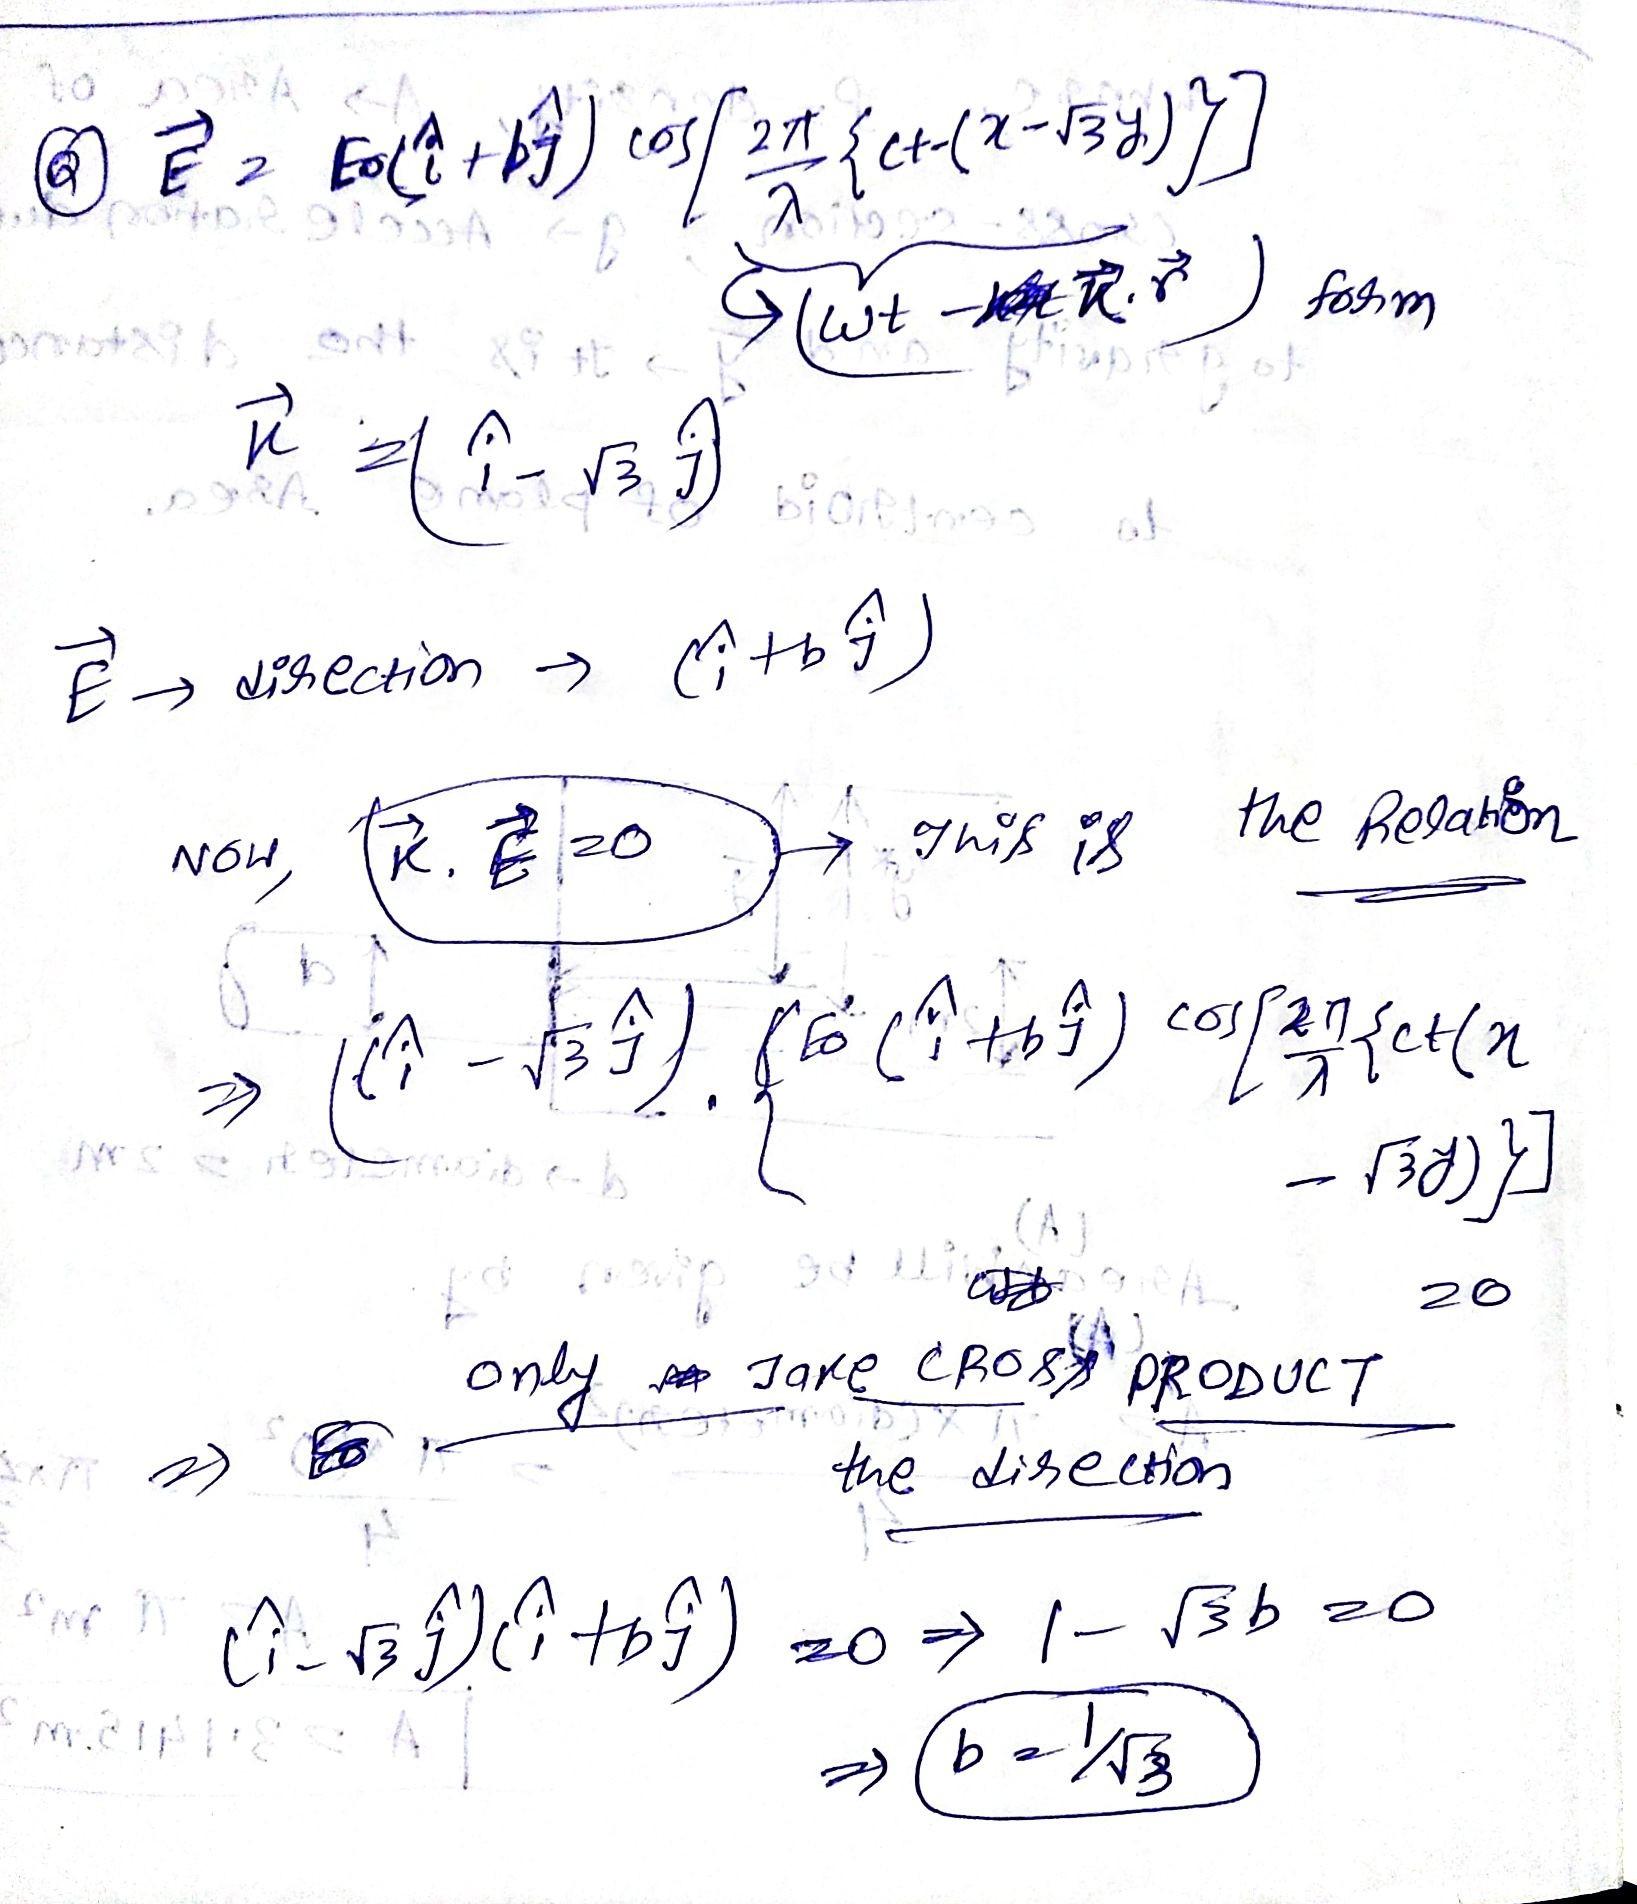 Q E⃗ = E₀(î + bĵ) cos[2π/λ {ct-(x-√3y)}]
(ωt - K⃗.r⃗) form
K⃗ = (î - √3 ĵ)
E⃗ → direction → (î + b ĵ)
NOW, K⃗. E⃗ = 0 → This is the Relation
⇒ (î - √3 ĵ). {E₀ (î + bĵ) cos[2π/λ {ct(x
- √3y)}]
= 0
only Take CROSS PRODUCT
⇒ the direction
(î - √3 ĵ)(î + bĵ) = 0 ⇒ 1 - √3b = 0
⇒ b = 1/√3